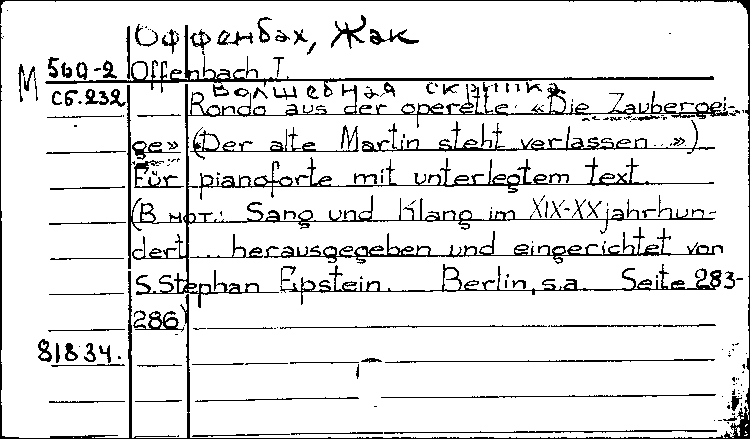 Оффенбах, Жак
М 560-2 Offenbach, I.
Волшебная скрипка
сб. 232 Rondo aus der operette: «Die Zaubergei-
ge» (Der alte Martin steht verlassen...»)
Für pianoforte mit unterlegtem text.
(В нот.: Sang und Klang im XIX-XX jahrhun-
dert... herausgegeben und eingerichtet von
S. Stephan Epstein. Berlin, s.a. Seite 283-
286)
81834.